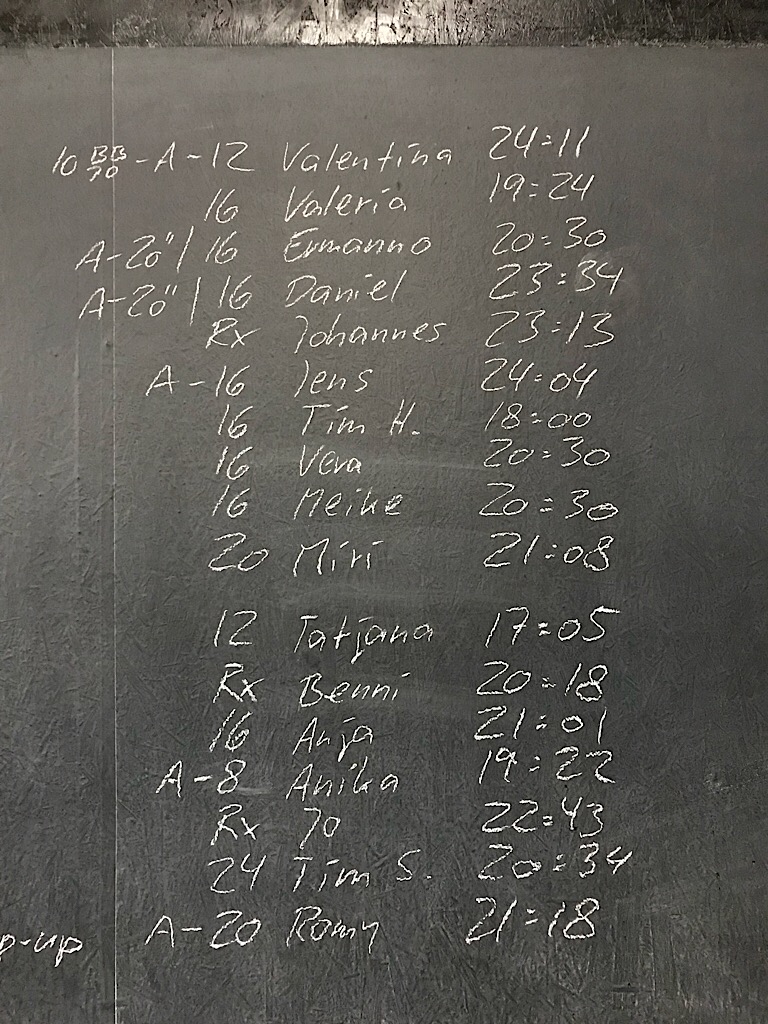 10 BB 70 - A - 12 Valentina 24:11
16 Valeria 19:24
A-20"/16 Ermanno 20:30
A-20"/16 Daniel 23:34
Rx Johannes 23:13
A-16 Jens 24:04
16 Tim H. 18:00
16 Vera 20:30
16 Meike 20:30
20 Miri 21:08
12 Tatjana 17:05
Rx Benni 20:18
16 Anja 21:01
A-8 Anika 19:22
Rx Jo 22:43
24 Tim S. 20:34
p-up A-20 Romy 21:18